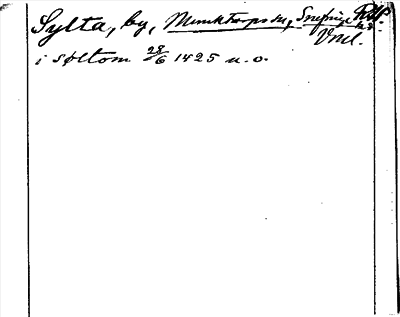 Sylta, by, Munktorps sn, Snefringe
Vnl.
i søltom 28/6 1425 u. o.